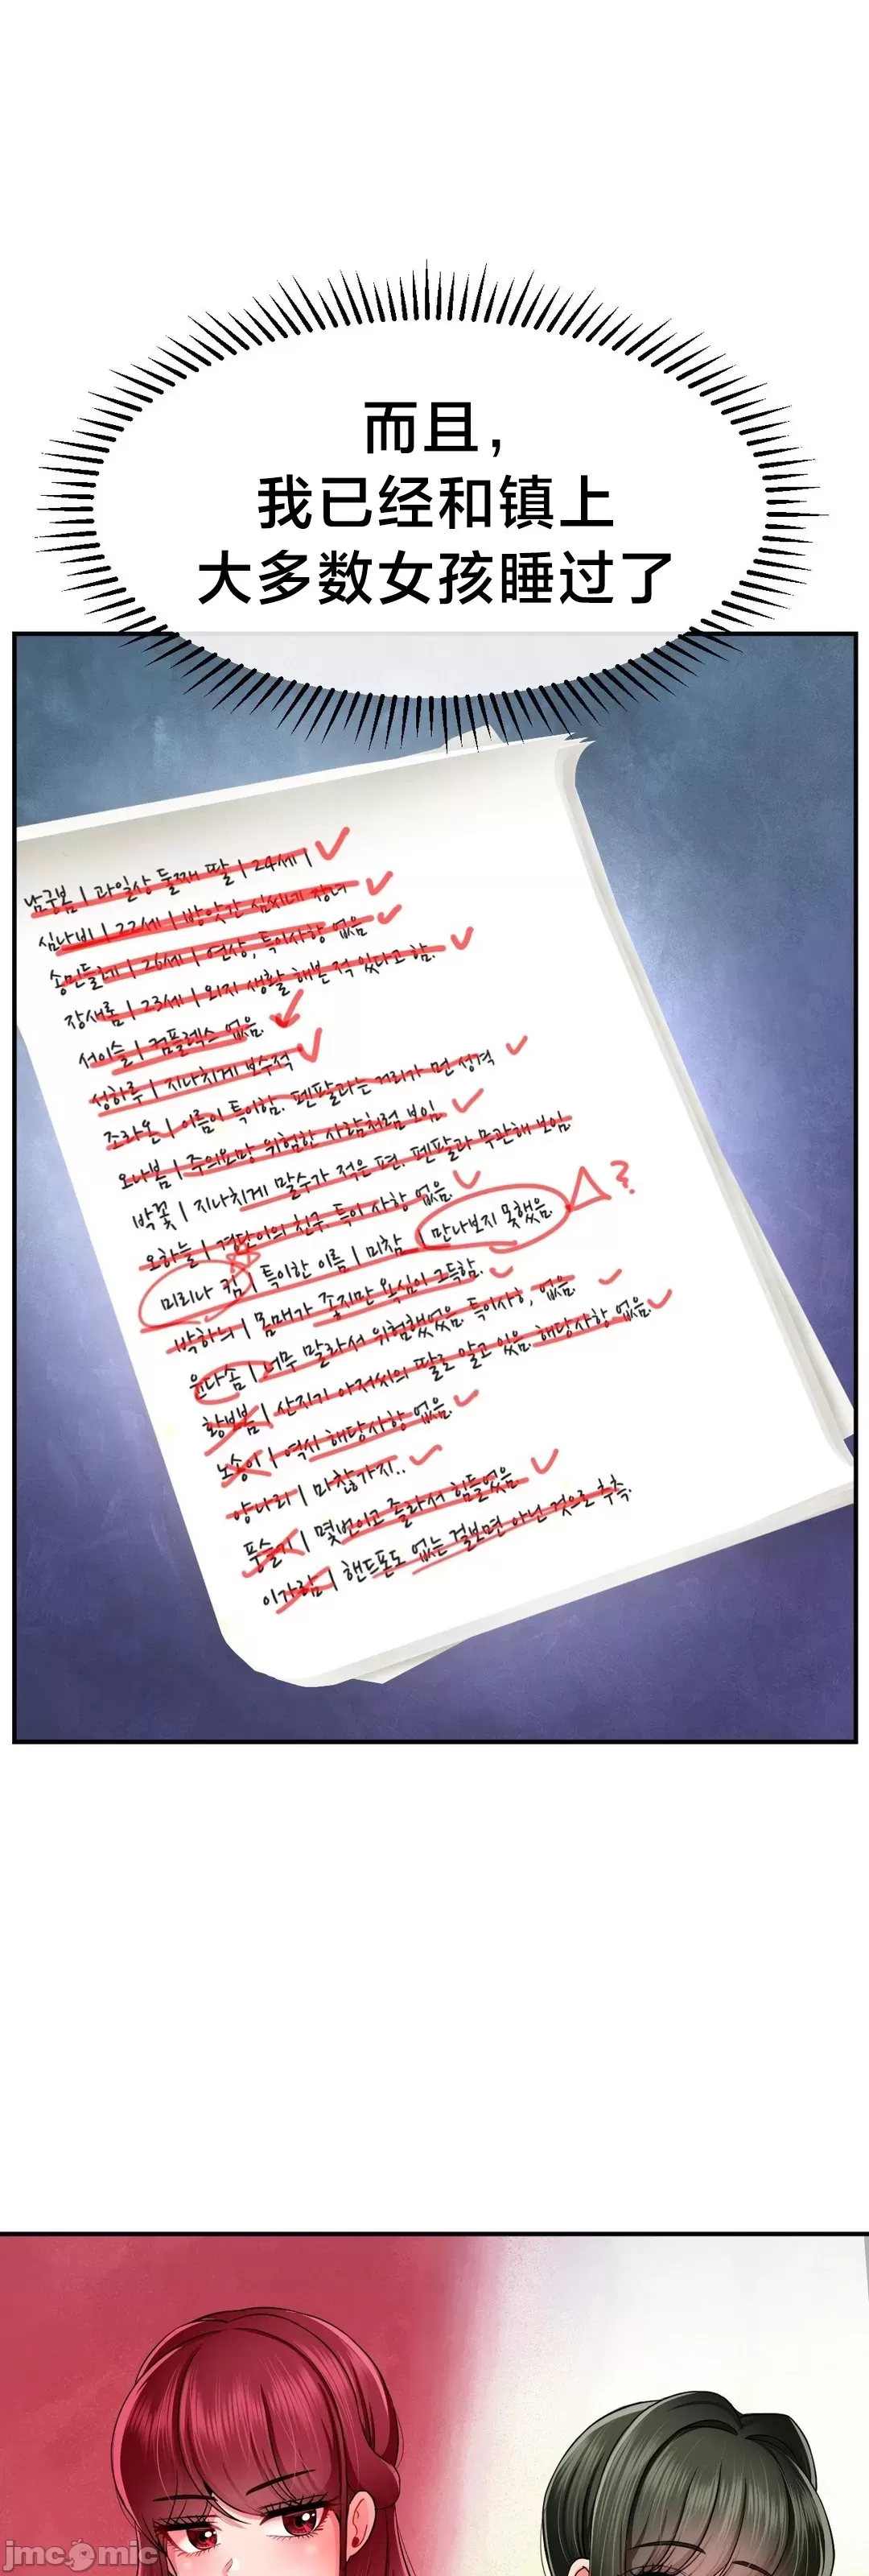 而且，
我已经和镇上
大多数女孩睡过了
남궁봄 | 과일상 둘째 딸 | 24세 |
심나비 | 22세 | 방앗간 심씨네 장녀
송민들레 | 26세 | 연상, 특이사항 없음
장새롬 | 23세 | 외지 생활 해본 적 있다고 함.
서이슬 | 컴플렉스 없음.
성하루 | 지나치게 보수적
조라온 | 이름이 특이함. 펜팔과는 거리가 먼 성격
오나봄 | 주의요망 위험한 사람처럼 보임
박꽃 | 지나치게 말수가 적은 편. 펜팔과 무관해 보임
오하늘 | 경단이의 친구. 특이 사항 없음.
미리나 킴 | 특이한 이름 | 미참 | 만나보지 못했음. ?
박하늬 | 몸매가 좋지만 욕심이 그득함.
윤다솜 | 너무 말라서 위험했었음. 특이사항, 없음.
황봄 | 산지기 아저씨의 딸로 알고 있음. 해당사항 없음.
노송이 | 역시 해당사항 없음.
양나리 | 마찬가지..
풍슬기 | 몇번이고 졸라서 힘들었음.
이가람 | 핸드폰도 없는 걸보면 아닌 것으로 추측.
jmcomic